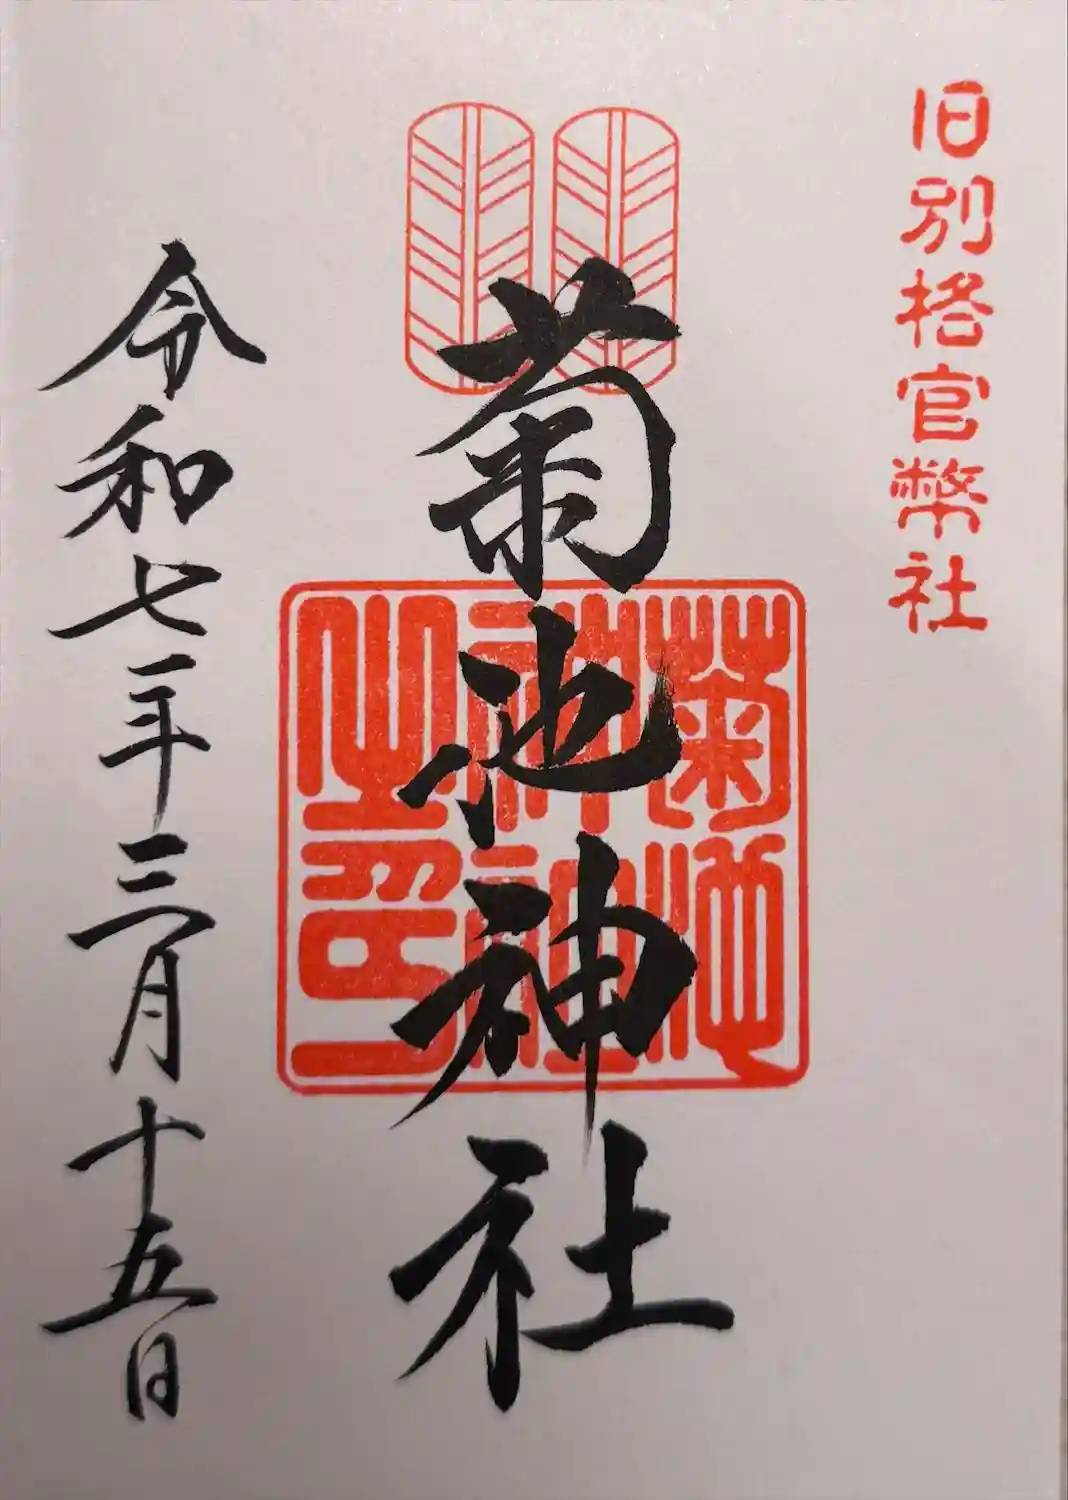 旧別格官幣社
菊池神社
菊池
神社
之印
令和七年三月十五日